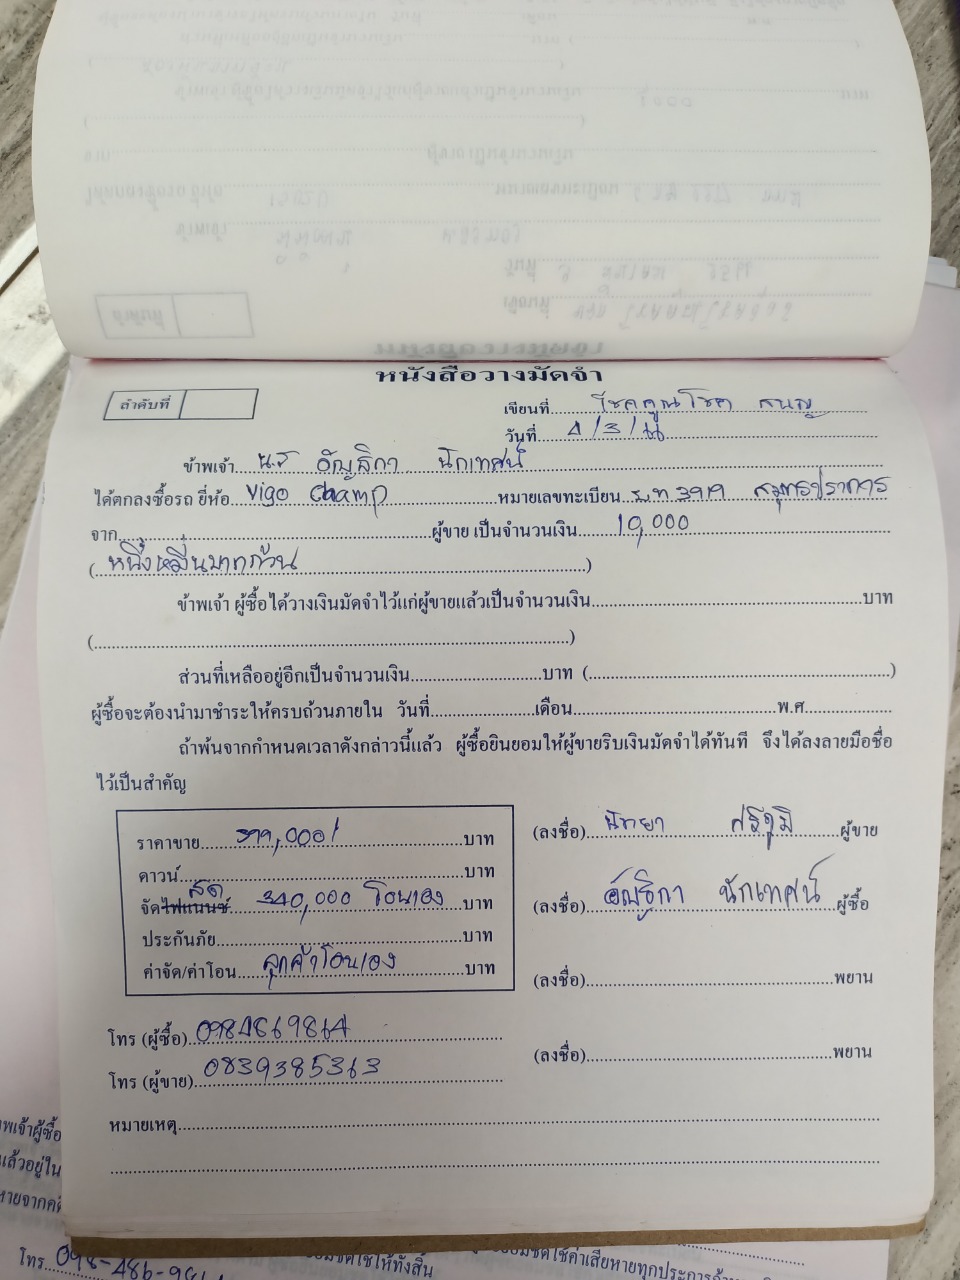 หนังสือวางมัดจำ
ลำดับที่
เขียนที่ โชคคูณโชค
วันที่ 4/3/
ข้าพเจ้า น.ส อัญธิกา นักเทศน์
ได้ตกลงซื้อรถ ยี่ห้อ Vigo Champ หมายเลขทะเบียน 3919 สมุทรปราการ
จาก ผู้ขาย เป็นจำนวนเงิน 10,000
(หนึ่งหมื่นบาทถ้วน)
ข้าพเจ้า ผู้ซื้อได้วางเงินมัดจำไว้แก่ผู้ขายแล้วเป็นจำนวนเงิน บาท
( )
ส่วนที่เหลืออยู่อีกเป็นจำนวนเงิน บาท ( )
ผู้ซื้อจะต้องนำมาชำระให้ครบถ้วนภายใน วันที่ เดือน พ.ศ
ถ้าพ้นจากกำหนดเวลาดังกล่าวนี้แล้ว ผู้ซื้อยินยอมให้ผู้ขายริบเงินมัดจำได้ทันที จึงได้ลงลายมือชื่อ
ไว้เป็นสำคัญ
ราคาขาย บาท
ดาวน์ บาท
จัดไฟแนนซ์ สด 340,000 โอนเอง บาท
ประกันภัย บาท
ค่าจัด/ค่าโอน ลูกค้าโอนเอง บาท
(ลงชื่อ) ผู้ขาย
(ลงชื่อ) อัญธิกา นักเทศน์ ผู้ซื้อ
(ลงชื่อ) พยาน
(ลงชื่อ) พยาน
โทร (ผู้ซื้อ) 0984869864
โทร (ผู้ขาย) 0839385363
หมายเหตุ
โทร. 098-486-